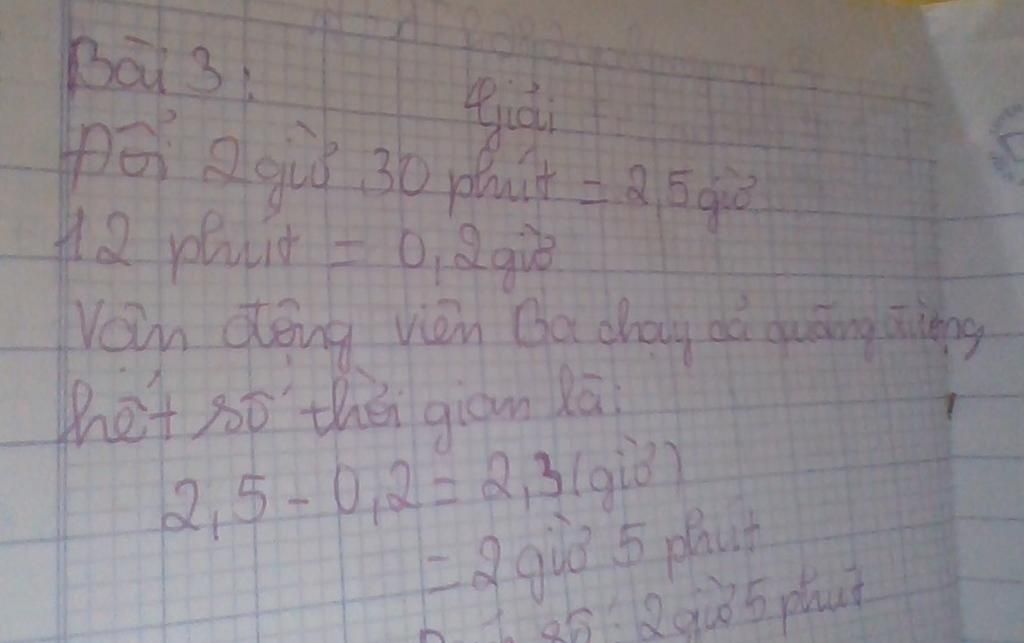 Bài 3:
Giải
Đổi 2 giờ 30 phút = 2,5 giờ
12 phút = 0,2 giờ
Vận động viên Ba chạy cả quãng đường
hết số thời gian là:
2,5 - 0,2 = 2,3 (giờ)
= 2 giờ 5 phút
số: 2 giờ 5 phút